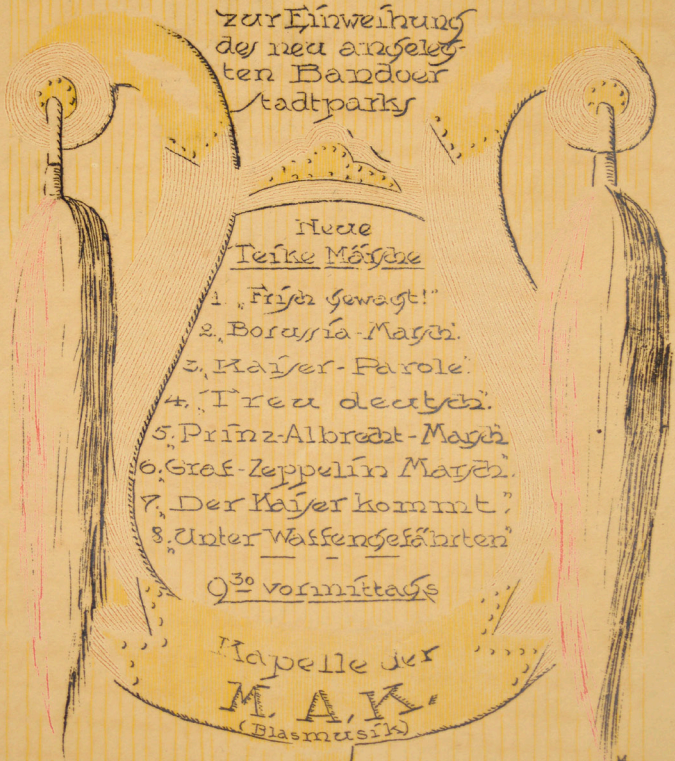 zur Einweihung
des neu angeleg-
ten Bandoer
Stadtparks
Neue
Teike Märsche
1. „Frisch gewagt!"
2. „Borussia-Marsch".
3. „Kaiser-Parole".
4. „Treu deutsch".
5. „Prinz-Albrecht-Marsch"
6. „Graf-Zeppelin Marsch".
7. „Der Kaiser kommt".
8. „Unter Waffengefährten"
9³⁰ vormittags
Kapelle der
M. A. K.
(Blasmusik)